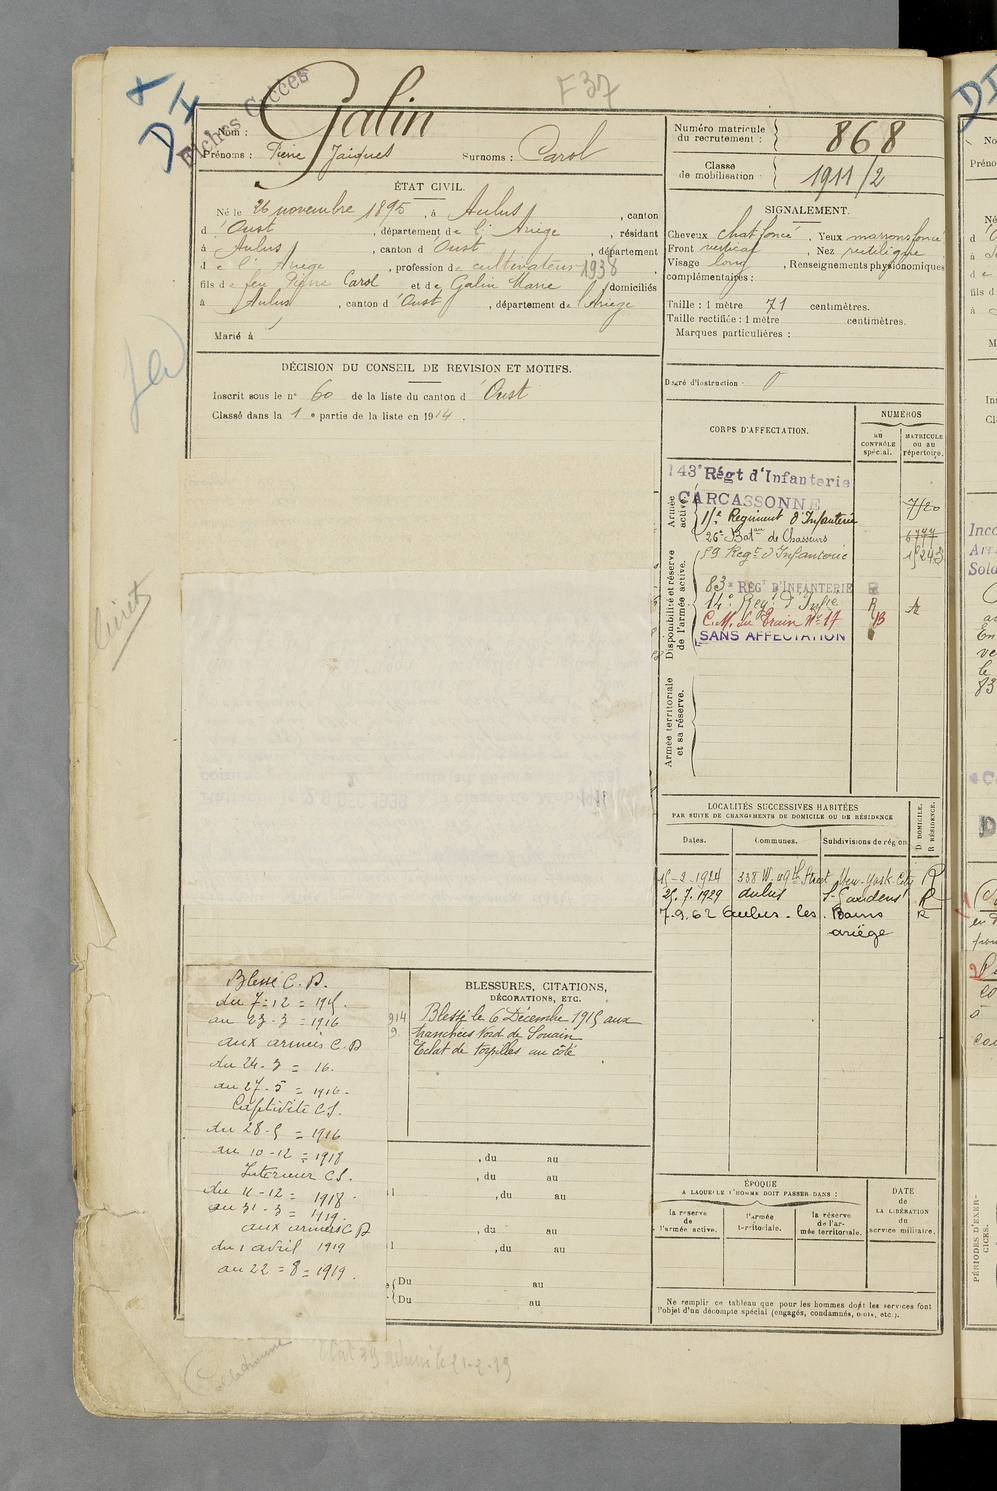 F 37
DI
Fiches Cotées
Nom : Galin
Prénoms : Pierre Jacques Surnoms : Carol
Numéro matricule du recrutement : 868
Classe de mobilisation : 1911/2
ÉTAT CIVIL.
Né le 26 novembre 1895, à Aulus, canton
d'Oust, département de l'Ariège, résidant
à Aulus, canton d'Oust, département
de l'Ariège, profession de cultivateur 1938
fils de feu Pierre Carol et de Galin Marie domiciliés
à Aulus, canton d'Oust, département de l'Ariège
Marié à
SIGNALEMENT.
Cheveux chat. foncé. Yeux marrons foncé
Front vertical, Nez rectiligne
Visage long, Renseignements physionomiques
complémentaires :
Taille : 1 mètre 71 centimètres.
Taille rectifiée : 1 mètre centimètres.
Marques particulières :
Degré d'instruction : 0
DÉCISION DU CONSEIL DE REVISION ET MOTIFS.
Inscrit sous le n° 60 de la liste du canton d'Oust
Classé dans la 1e partie de la liste en 1914.
CORPS D'AFFECTATION.
NUMÉROS
au contrôle spécial.
MATRICULE ou au répertoire.
Armée active.
143e Régt d'Infanterie
CARCASSONNE 7120
15e Régiment d'Infanterie
26e Baton de Chasseurs 6777
Disponibilité et réserve de l'armée active.
59 Regt d'Infanterie
83e REGT D'INFANTERIE R
14e Reg. d'Infie R
C.M. du Train No 17 B
SANS AFFECTATION
Armée territoriale et sa réserve.
LOCALITÉS SUCCESSIVES HABITÉES
PAR SUITE DE CHANGEMENTS DE DOMICILE OU DE RÉSIDENCE
Dates. Communes. Subdivisions de région
D DOMICILE.
R RÉSIDENCE.
15-2-1924 238 W. 49th Street New-York-City R
25.7.1929 Aulus St Gaudens R
7.9.62 Aulus-les-Bains R
ariège
BLESSURES, CITATIONS,
DÉCORATIONS, ETC.
Blessé le 6 Décembre 1915 aux
tranchées Nord de Souain
Eclat de torpilles au côté
Blessé C.D.
du 7-12=1915.
au 23-3=1916
aux armées C.D
du 24-3=16.
au 27-5=1916.
Captivité CS.
du 28-5=1916
au 10-12=1918
Intérieur CS.
du 11-12=1918.
au 31-3=1919.
aux armées C D
du 1 avril 1919
au 22=8=1919.
, du au
, du au
, du au
, du au
, du au
Du au
Du au
ÉPOQUE
A LAQUELLE L'HOMME DOIT PASSER DANS :
la réserve de l'armée active.
l'armée territoriale.
la réserve de l'armée territoriale.
DATE
de
LA LIBÉRATION
du
service militaire.
Ne remplir ce tableau que pour les hommes dont les services font
l'objet d'un décompte spécial (engagés, condamnés, omis, etc.).
PÉRIODES D'EXERCICES.